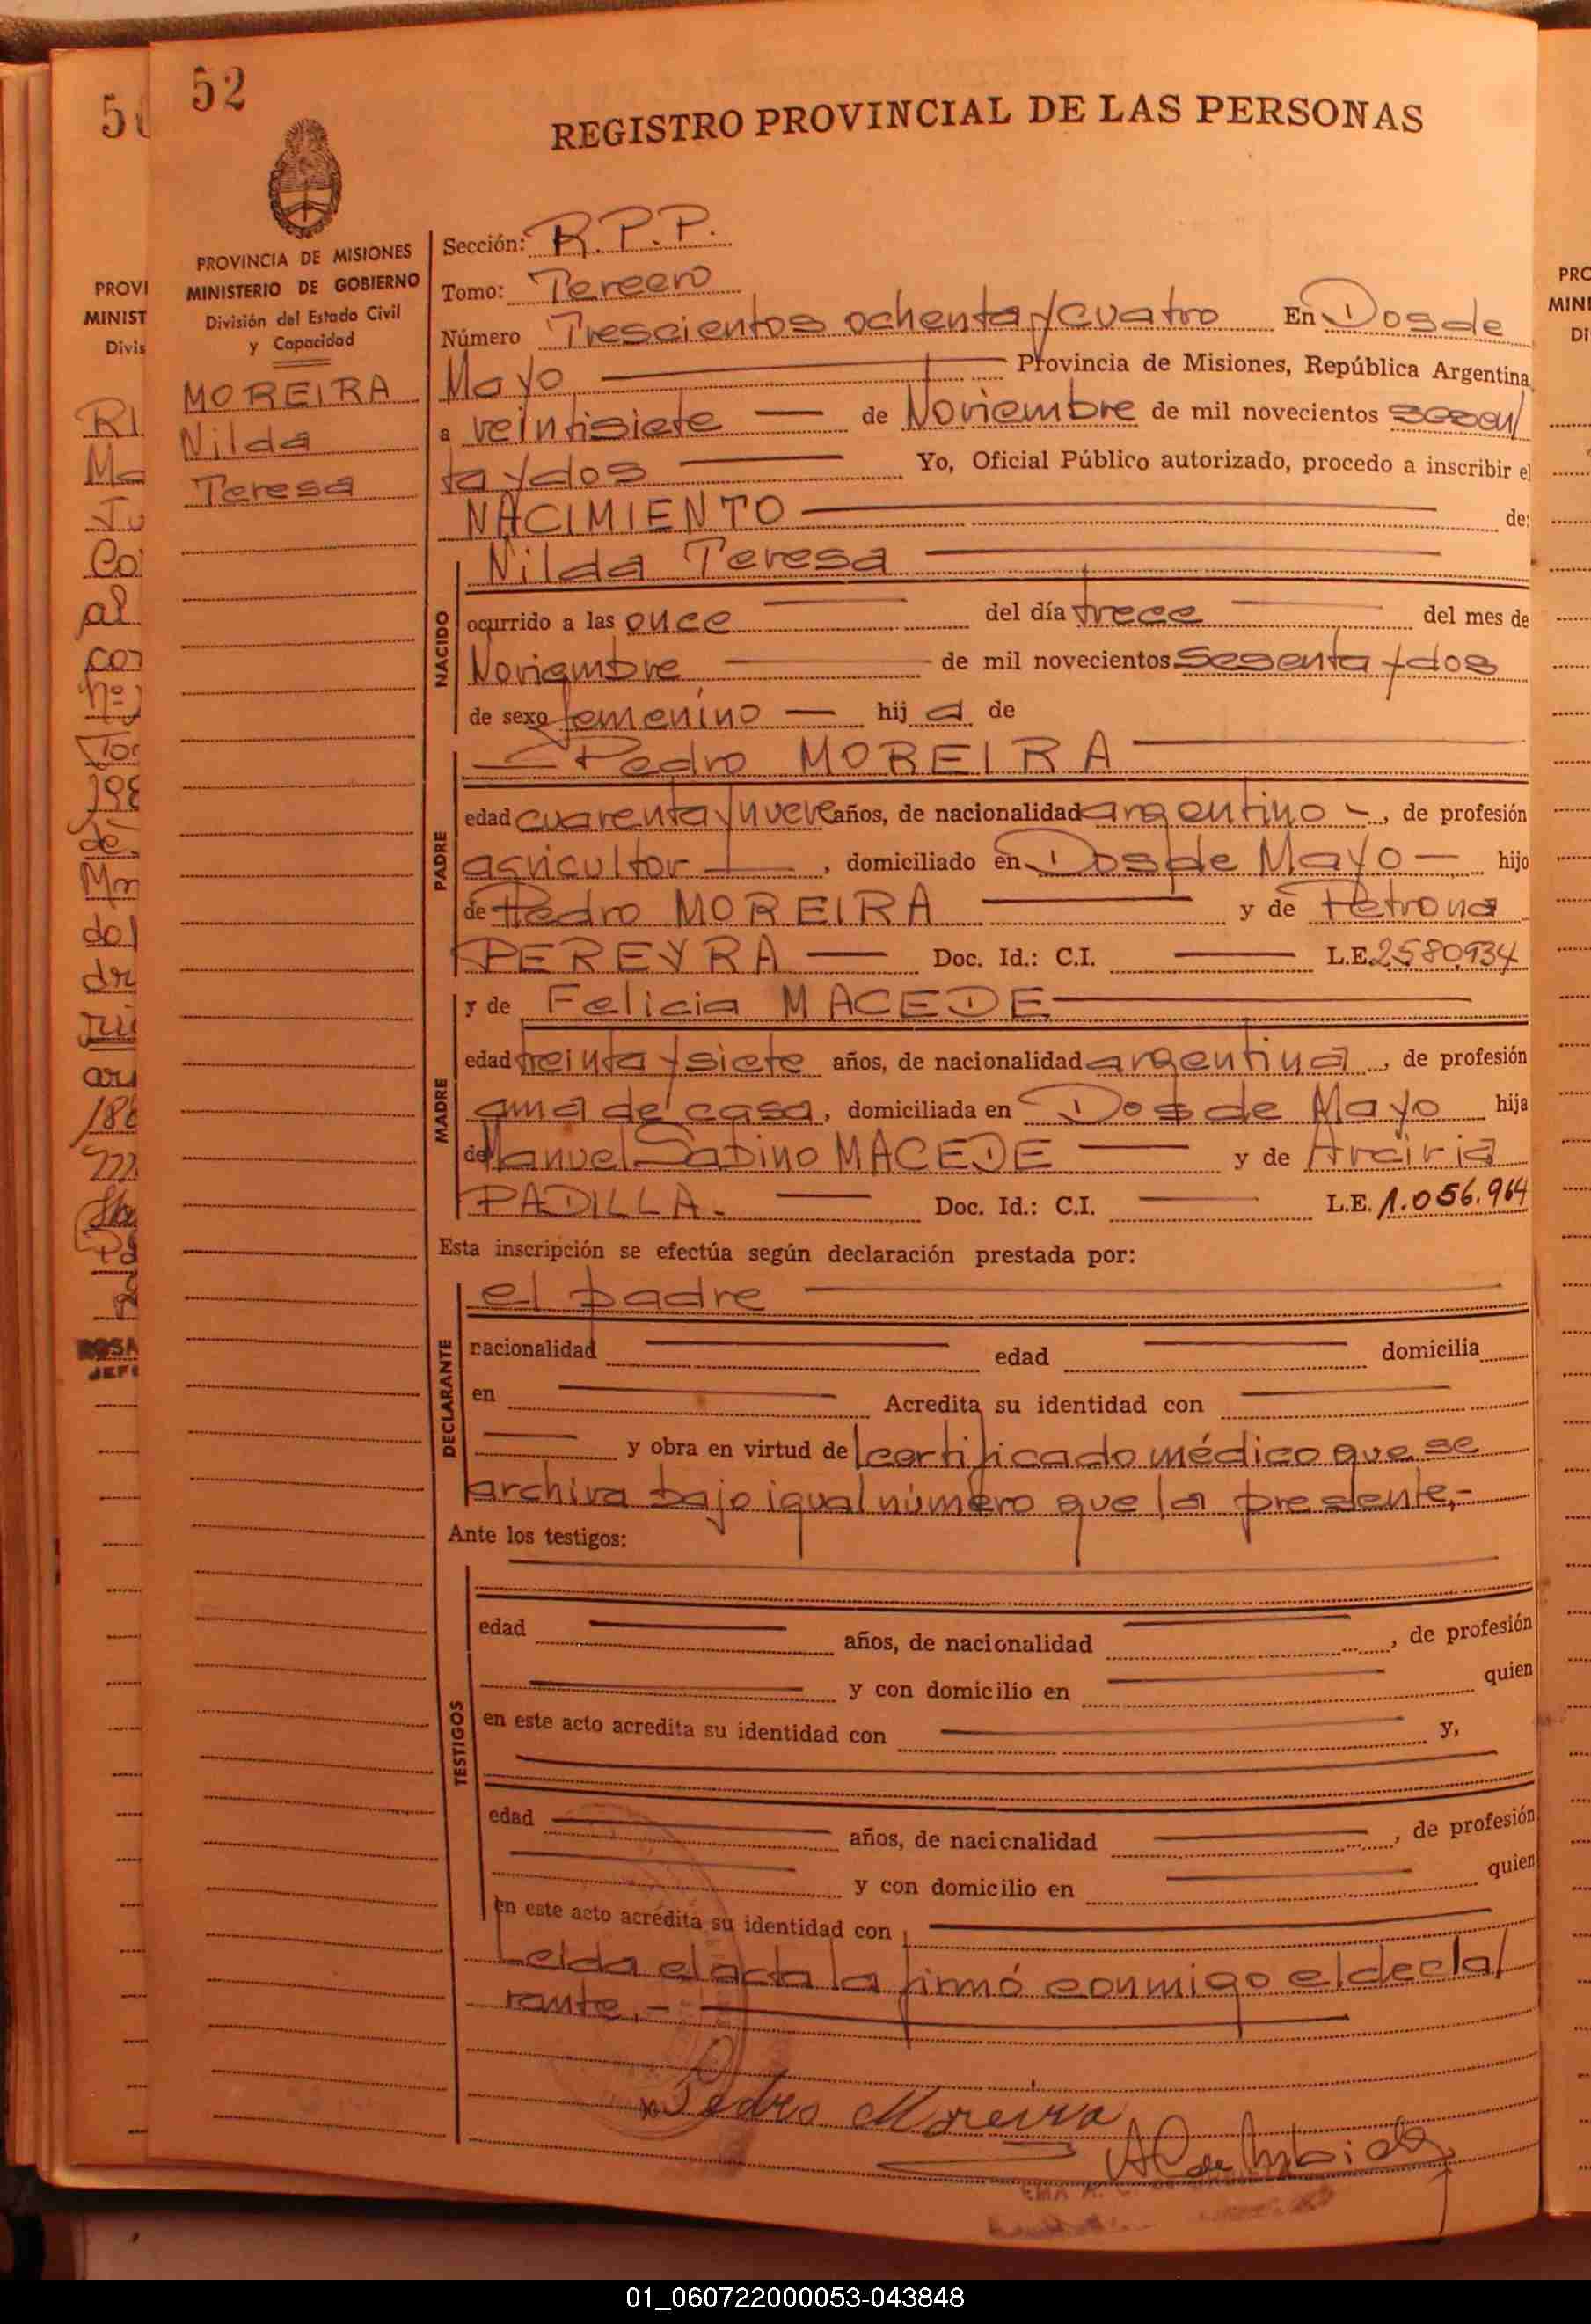 52
REGISTRO PROVINCIAL DE LAS PERSONAS
PROVINCIA DE MISIONES
MINISTERIO DE GOBIERNO
División del Estado Civil
y Capacidad
MOREIRA
Nilda
Teresa
Sección: R.P.P.
Tomo: Tercero
Número Trescientos ochenta y cuatro En Dos de
Mayo Provincia de Misiones, República Argentina
a veintisiete de Noviembre de mil novecientos sesen/
ta y dos Yo, Oficial Público autorizado, procedo a inscribir el
NACIMIENTO de:
NACIDO
Nilda Teresa
ocurrido a las once del día trece del mes de
Noviembre de mil novecientos sesenta y dos
de sexo femenino hij a de
PADRE
Pedro MOREIRA
edad cuarenta y nueve años, de nacionalidad argentino, de profesión
agricultor, domiciliado en Dos de Mayo hijo
de Pedro MOREIRA y de Petrona
PEREYRA Doc. Id.: C.I. L.E. 2580934
MADRE
y de Felicia MACEDE
edad treinta y siete años, de nacionalidad argentina, de profesión
ama de casa, domiciliada en Dos de Mayo hija
de Manuel Sabino MACEDE y de
PADILLA. Doc. Id.: C.I. L.E. 1.056.964
Esta inscripción se efectúa según declaración prestada por:
DECLARANTE
el padre
nacionalidad edad domicilia
en Acredita su identidad con
y obra en virtud de certificado médico que se
archiva bajo igual número que la presente.-
Ante los testigos:
TESTIGOS
edad años, de nacionalidad , de profesión
y con domicilio en quien
en este acto acredita su identidad con y,
edad años, de nacicnalidad , de profesión
y con domicilio en quien
en este acto acredita su identidad con
Leida el acta la firmó conmigo el decla/
rante.-
Pedro Moreira
01_060722000053-043848